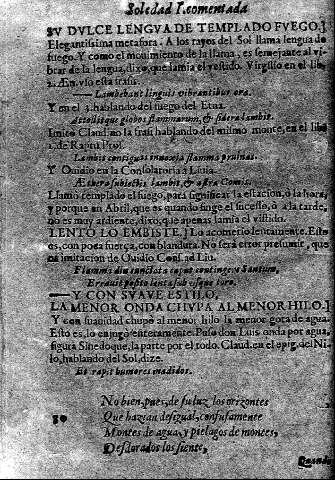 Soledad I. comentada
SV DVLCE LENGVA DE TEMPLADO FVEGO.]
Elegantissima metafora. A los rayos del Sol llama lengua de
fuego. Y como el mouimiento de la llama, es semejante al vi-
brar de la lengua, dixo, que lamia el vestido. Virgilio en el lib.
2. Æn. vsó esta frasis.
Lambebant linguis vibrantibus ora.
Y en el 3. hablando del fuego del Etna.
Attollitque globos flammarum, & sidera lambit.
Imitò Claudiano la frasi hablando del mismo monte, en el lib.
1. de Raptu Pros.
Lambit contiguas innoxia flamma pruinas.
Y Ouidio en la Consolatoria a Liuia.
Llamò templado el fuego, para significar la estacion, ò la hora,
y porque en Abril, que es quando finge el sucesso, ò a la tarde,
no es muy ardiente, dixo, que apenas lamia el vestido.
LENTO LO EMBISTE,] Lo acometio lentamente. Esto
es, con poca fuerça, con blandura. No serà error presumir, que
es imitacion de Ouidio Cons. ad Liu.
—Y CON SVAVE ESTILO,
LA MENOR ONDA CHVPA AL MENOR HILO.]
Y con suauidad chupò al menor hilo la menor gota de agua.
Esto es, lo enjugò enteramente. Puso don Luis onda por agua,
figura Sinedoque, la parte por el todo. Claud. en el epig. del Ni-
lo, hablando del Sol, dize.
Et rapit humores madidos.
No bien, pues, de su luz los orizontes
Que hazian desigual, confusamente
Montes de agua, y pielagos de montes,
Desdorados los siente,